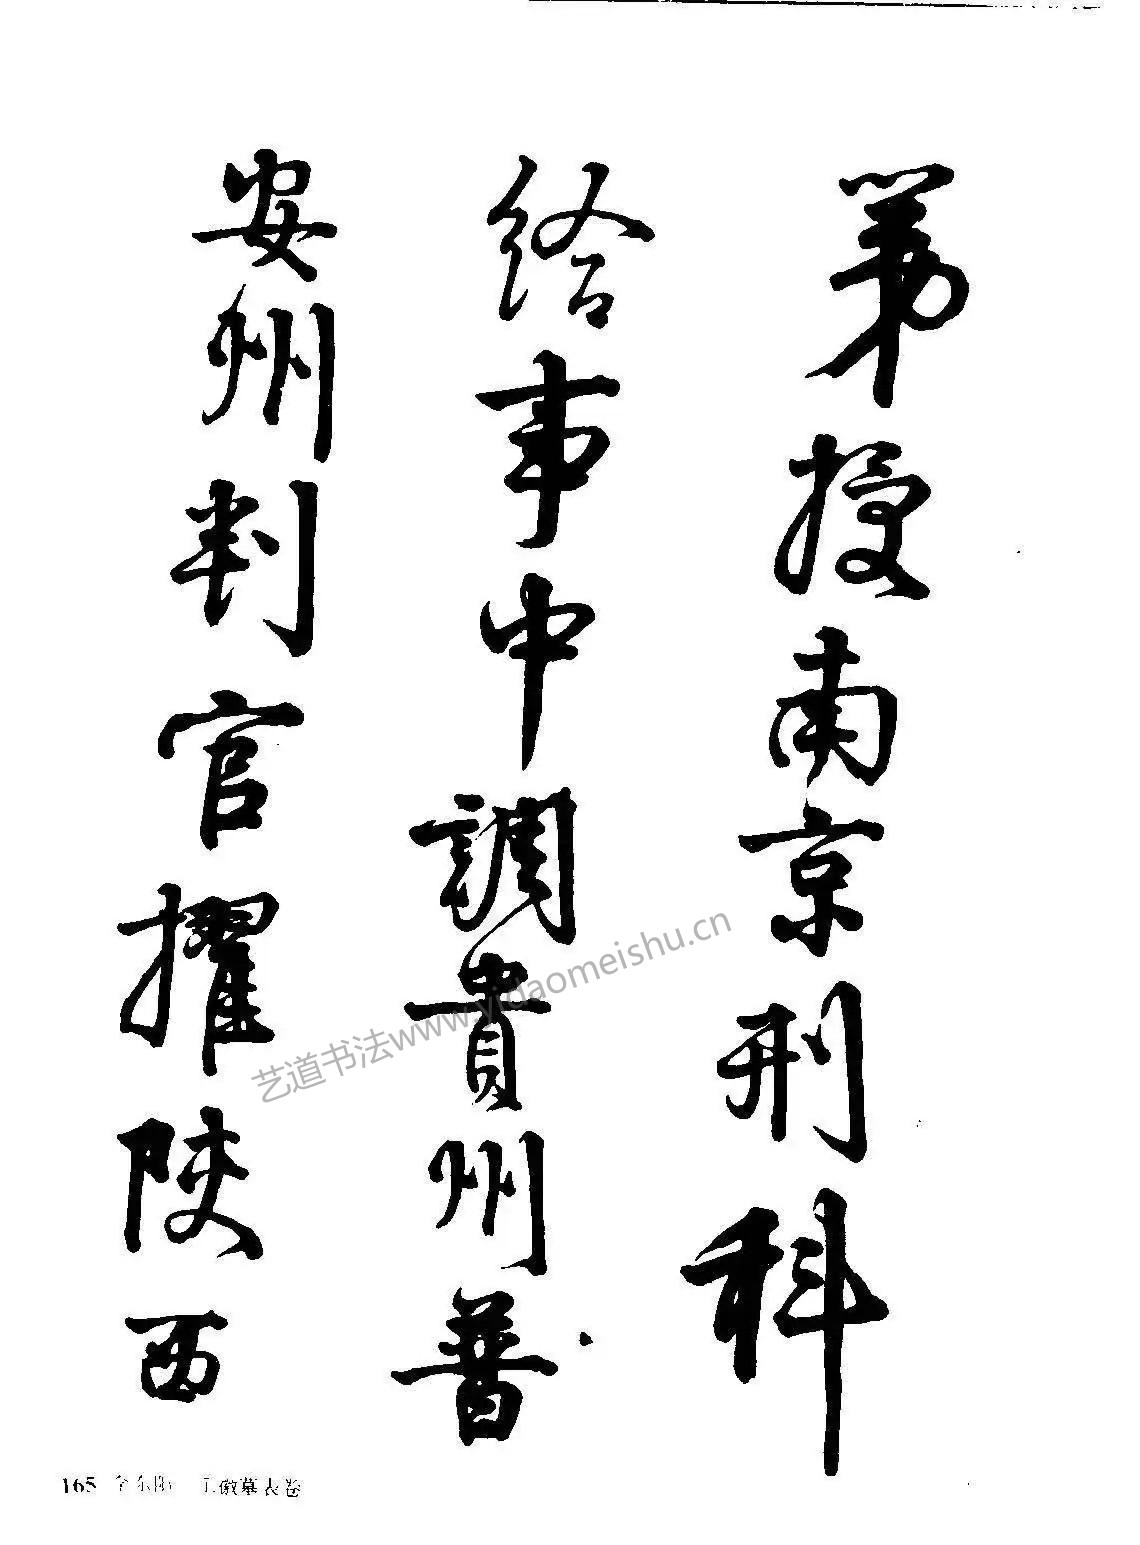 第授南京刑科
給事中調貴州普
安州判官擢陝西
艺道书法www.yidaomeishu.cn
165 李东阳 王徽墓表卷